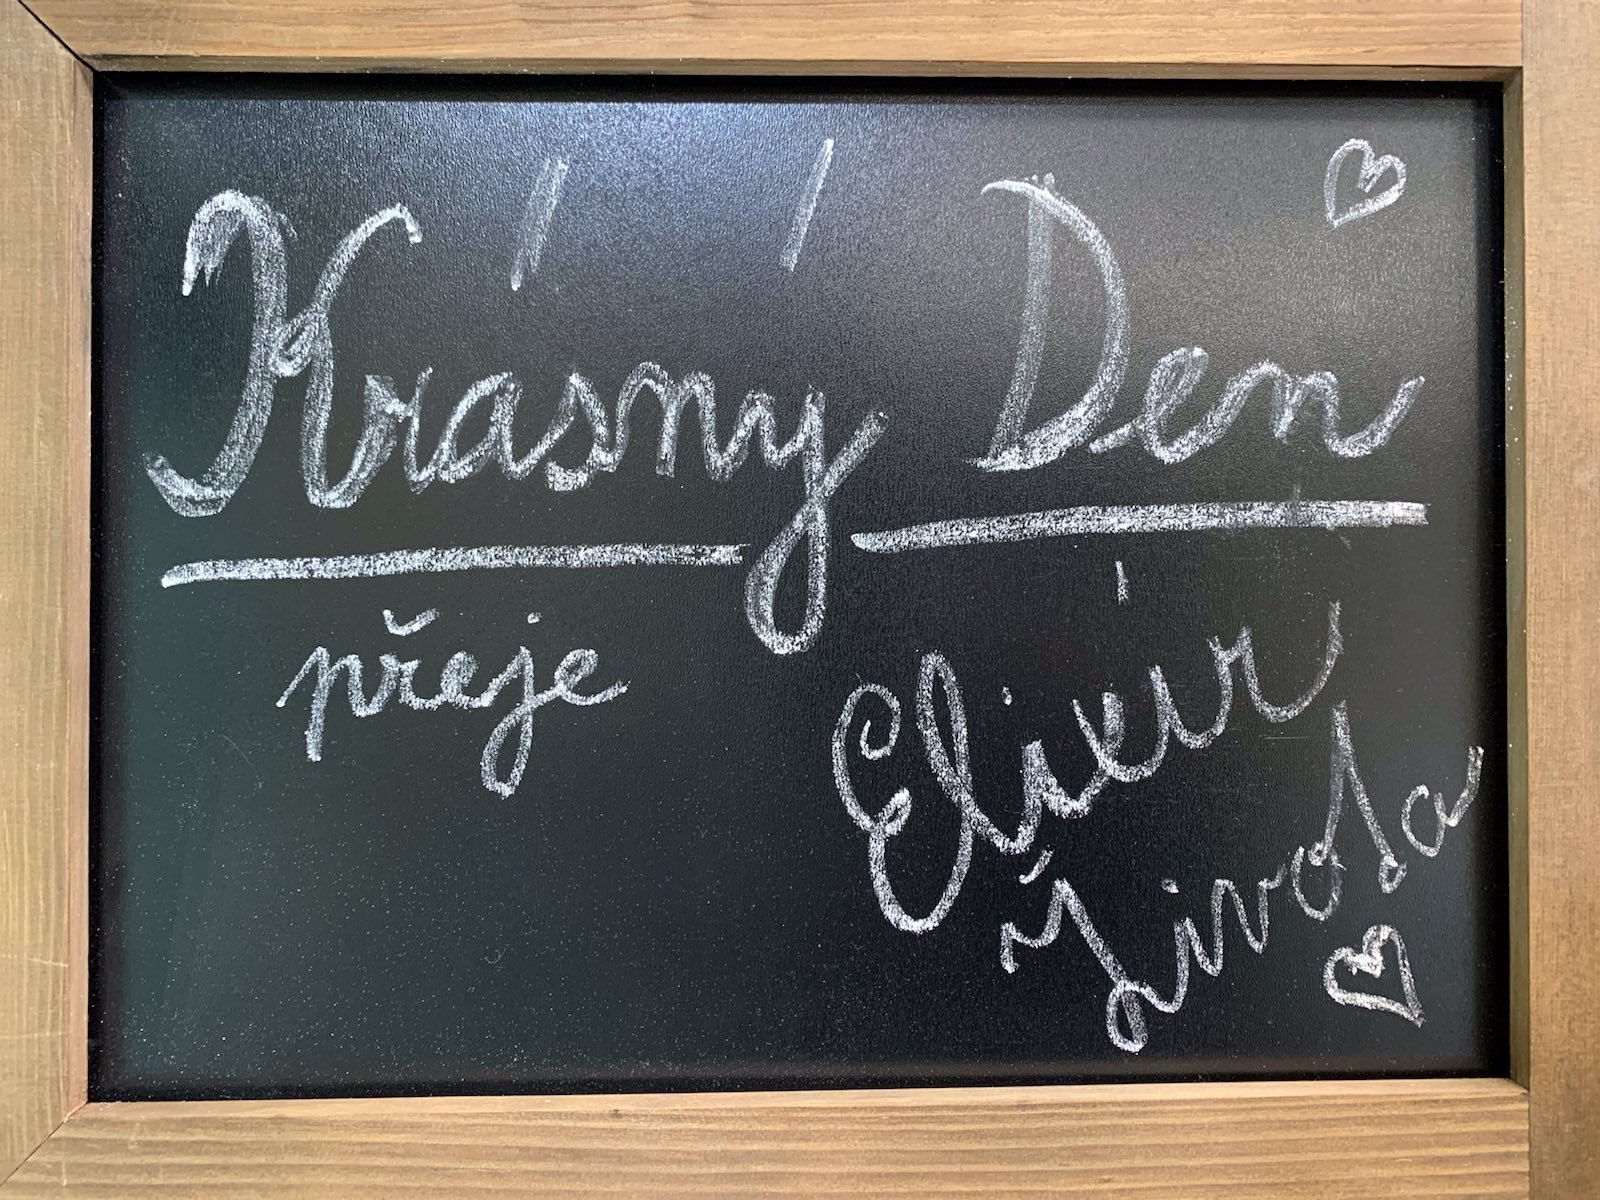 Krásný Den
přeje
Elixír
Života